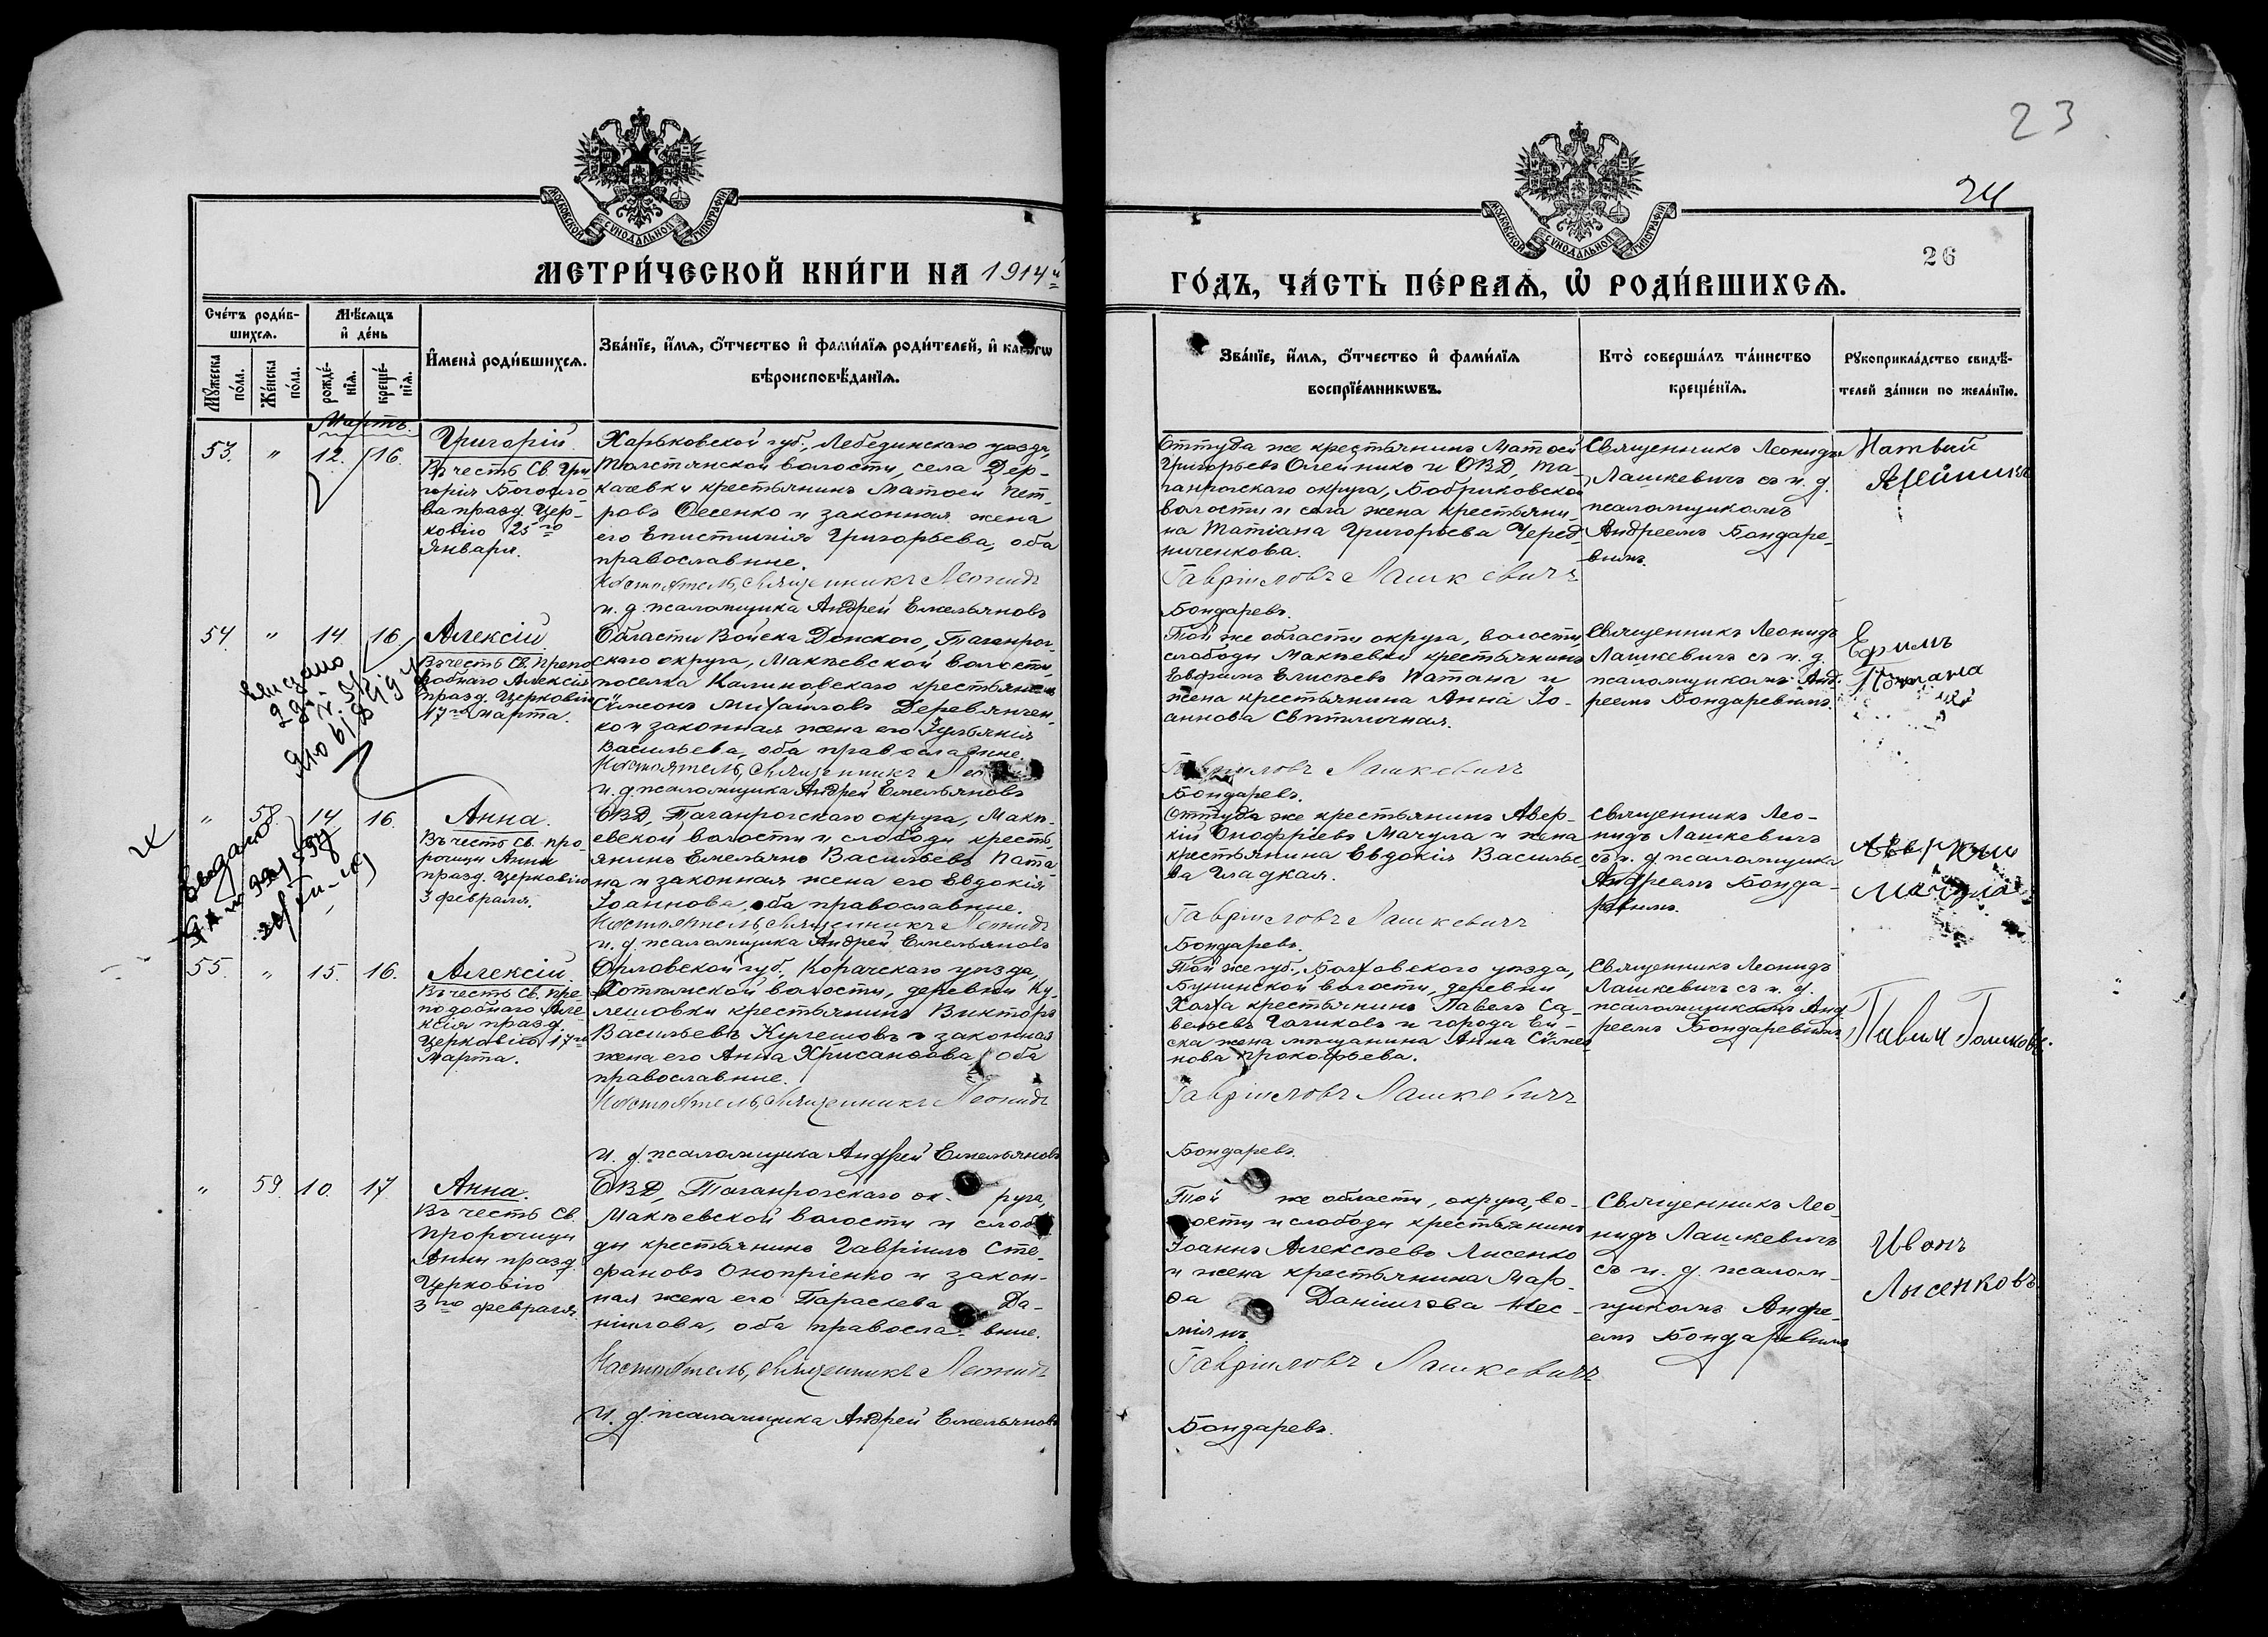 23
24
26
МОСКОВСКОЙ СѴНОДАЛЬНОЙ ТИПОГРАФІИ
МОСКОВСКОЙ СѴНОДАЛЬНОЙ ТИПОГРАФІИ
МЕТРИ́ЧЕСКОЙ КНИ́ГИ НА 1914й
ГО́ДЪ, ЧА́СТЬ ПЕ́РВАѦ, Ѡ РОДИ́ВШИХСѦ.
Сче́тъ роди́в-
шихсѧ.
Мꙋ́жеска по́ла.
Же́нска по́ла.
Мѣ́сѧцъ
и҆ де́нь
рожде́-
нїѧ.
креще́-
нїѧ.
И҆мена̀ роди́вшихсѧ.
Зва́нїе, и҆́мѧ, ѻ҆́тчество и҆ фами́лїѧ роди́телей, и҆ како́гѡ
вѣроисповѣ́данїѧ.
Зва́нїе, и҆́мѧ, ѻ҆́тчество и҆ фами́лїѧ
воспрїе́мникѡвъ.
Кто̀ соверша́лъ та́инство
креще́нїѧ.
Рꙋкоприкла́дство свидѣ́-
телей за́писи по жела́нїю.
Мартъ.
53. " 12. 16.
Григорій
Въ честь Св. Гри
горія Богосло
ва празд. Цер-
ковію 25го
Января.
Харьковской губ., Лебединскаго уѣзда,
Толстянской волости, села Дер-
качевки крестьянинъ Матѳей Пет-
ровъ Фесенко и законная жена
его Епистимія Григорьева, оба
православные.
Настоятель, священникъ Леонидъ
и. д. псаломщика Андрей Емельяновъ
Оттуда же крестьянинъ Матѳей
Григорьевъ Олейникъ и ОВД, Та-
ганрогскаго округа, Бобриковской
волости и села жена крестьяни-
на Татіана Григорьева Черед
ниченкова.
Гавріиловъ Лашкевичъ
Бондаревъ.
Священникъ Леонидъ
Лашкевичъ съ и. д.
псаломщикомъ
Андреемъ Бондаре-
вымъ.
Матвий
Алейникъ
54. " 14 16
Алексій
Въ честь Св. Препо
добнаго Алексія
празд. Церковію
17го Марта.
Выдано
Области Войска Донского, Таганрог-
скаго округа, Макѣевской волости,
поселка Калиновскаго крестьянинъ
Сѵмеонъ Михаиловъ Деревянчен-
ко и законная жена его Іуліанія
Васильева, оба православные.
Настоятель, священникъ
и. д. псаломщика Андрей Емельяновъ
Той же области округа, волости,
слободы Макѣевки крестьянинъ
Евфимъ Елисѣевъ Патана и
жена крестьянина Анна Іо-
аннова Свѣтличная.
Гавріиловъ Лашкевичъ
Бондаревъ.
Священникъ Леонидъ
Лашкевичъ съ и. д.
псаломщикомъ Анд-
реемъ Бондаревымъ.
Ефимъ
Потана
" 58. 14 16.
Анна.
Въ честь Св. про-
рочицы Анны
празд. Церковію
3 февраля.
Выдано
ОВД, Таганрогскаго округа, Макѣ-
евской волости и слободы кресть-
янинъ Емельянъ Васильевъ Пата-
на и законная жена его Евдокія
Іоаннова, оба православные.
Настоятель, священникъ Леонидъ
и. д. псаломщика Андрей Емельяновъ
Оттуда же крестьянинъ Авер-
кій Онофріевъ Мачула и жена
крестьянина Евдокія Василье-
ва Гладкая.
Гавріиловъ Лашкевичъ
Бондаревъ.
Священникъ Лео-
нидъ Лашкевичъ
съ и. д. псаломщика
Андреемъ Бонда-
ревымъ.
Аверкий
Мачула
55. " 15. 16.
Алексій
Въ честь Св. Пре-
подобнаго Але-
ксія празд.
Церковію 17го
Марта.
Орловской губ., Корачскаго уѣзда,
Хотимской волости, деревни Ку-
лешовки крестьянинъ Викторъ
Васильевъ Кулешовъ и законная
жена его Анна Хрисанѳова, оба
православные.
Настоятель, священникъ Леонидъ
и. д. псаломщика Андрей Емельяновъ
Той же губ., Болховского уѣзда,
Бунинской волости, деревни
крестьянинъ Павелъ Са-
вельевъ Голиковъ и города Ей-
ска жена мѣщанина Анна Сѵмео
нова Прокофьева.
Гавріиловъ Лашкевичъ
Бондаревъ.
Священникъ Леонидъ
Лашкевичъ съ и. д.
псаломщикомъ Анд
реемъ Бондаревымъ
Павилъ Голиковъ
" 59. 10. 17.
Анна.
Въ честь Св.
Пророчицы
Анны празд.
Церковію
3го февраля.
ОВД, Таганрогскаго ок- руга,
Макѣевской волости и слобо
ды крестьянинъ Гавріилъ Сте-
фановъ Оноприенко и закон-
ная жена его Параскева Да-
ніилова, оба правосла- вные.
Настоятель, священникъ Леонидъ
и. д. псаломщика Андрей Емельяновъ
Той же области, округа, во-
лости и слободы крестьянинъ
Іоаннъ Алексѣевъ Лисенко
и жена крестьянина Мар-
ѳа Даніилова Нес-
міянъ.
Гавріиловъ Лашкевичъ
Бондаревъ.
Священникъ Лео-
нидъ Лашкевичъ
съ и. д. псалом-
щикомъ Андре-
емъ Бондаревымъ
Иванъ
Лысенковъ